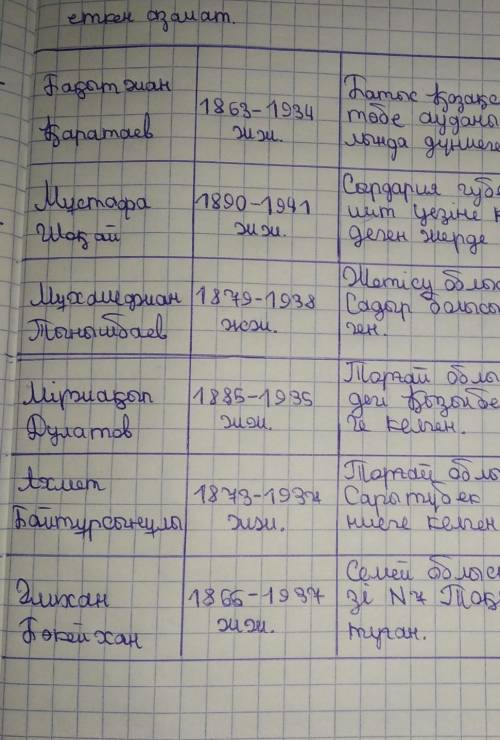 еткен азамат.
Бақытжан
Қаратаев
1863-1934
жж.
Батыс Қазақс
төбе ауданы
лында дүниеге
Мұстафа
Шоқай
1890-1941
жж.
Сырдария губе
шіт уезіне қ
деген жерде
Мұхамеджан
Тынышбаев
1879-1938
жж.
Жетісу облыс
Садыр болысы
ген.
Міржақып
Дулатов
1885-1935
жж.
Торғай облы
дегі Қызбе
ге келген.
Ахмет
Байтұрсынұлы
1873-1937
жж.
Торғай облы
Сарытүбек
ниеге келген
Әлихан
Бөкейхан
1866-1937
жж.
Семей облыс
зі №7 Тоқ
туған.